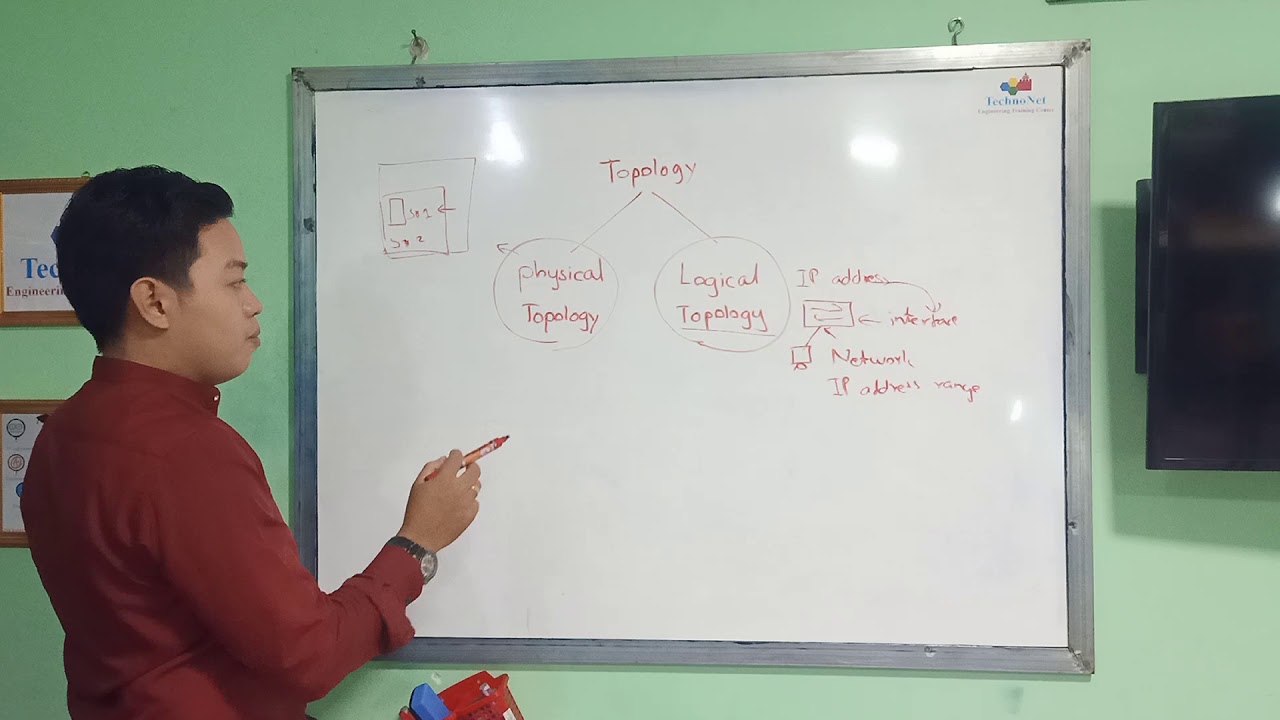 TechnoNet
Engineering Training Center
Topology
Physical
Topology
Logical
Topology
IP address
interface
Network
IP address range
Engineering